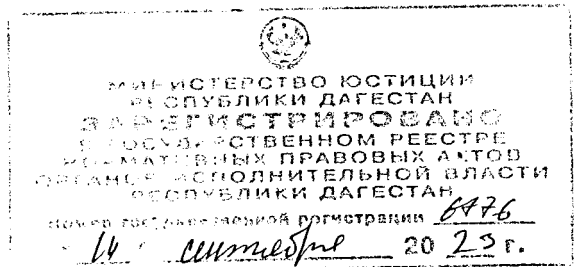 МИНИСТЕРСТВО ЮСТИЦИИ
РЕСПУБЛИКИ ДАГЕСТАН
ЗАРЕГИСТРИРОВАНО
В ГОСУДАРСТВЕННОМ РЕЕСТРЕ
НОРМАТИВНЫХ ПРАВОВЫХ АКТОВ
ОРГАНОВ ИСПОЛНИТЕЛЬНОЙ ВЛАСТИ
РЕСПУБЛИКИ ДАГЕСТАН
Номер государственной регистрации
14 сентября 20 23 г.